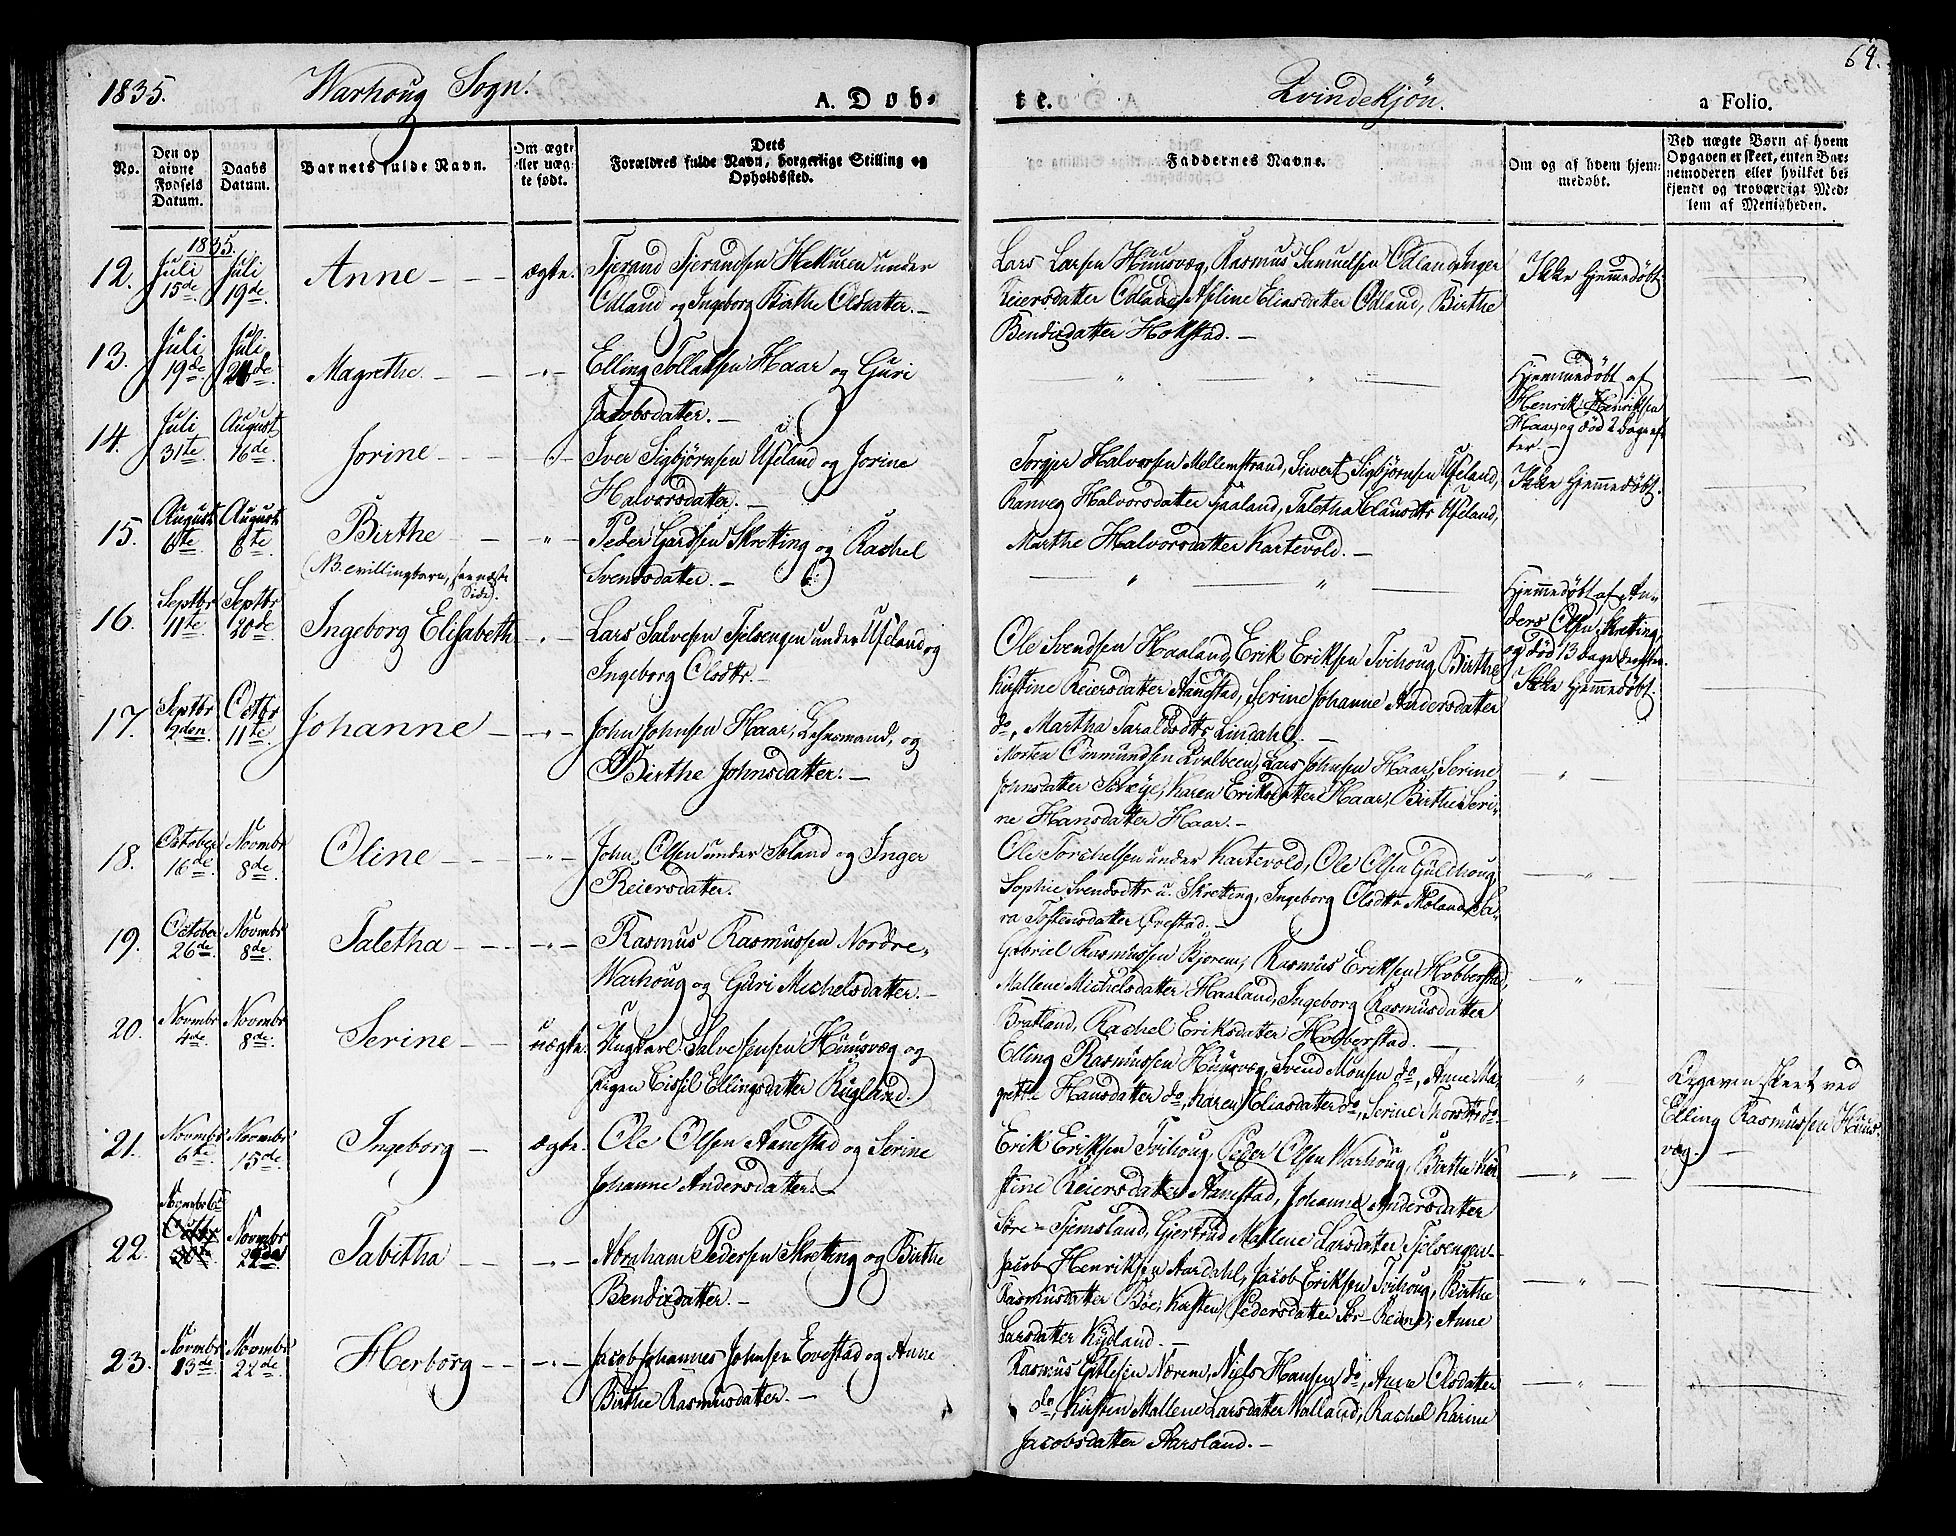 1835. Warhoug Sogn. A. Døb- te. Qvindekjøn. a Folio. 69.
No.
Den op givne Fødsels Datum.
Daabs Datum.
Barnets fulde Navn.
Om ægte eller uægte født.
Dets Forældres fulde Navn, borgerlige Stilling og Opholdssted.
Faddernes Navne.
Om og af hvem hjemmedøbt.
Ved uægte Børn af hvem Opgaven er skeet, enten Barnemoderen eller hvilket bekjendt og troværdigt Medlem af Menigheden.
1835.
12. Juli 15de Juli 19de Anne ægte. Tjerand Tjerandsen Hekuren under
Odland og Ingeborg Birthe Olsdatter.
Lars Larsen Huusvæg, Rasmus Samuelsen Odland, Inger
Reiersdatter Odland, Asline Eliasdatter Odland, Birthe
Bendixdatter Hokstad.
Ikke Hjemmedøbt.
13. Juli 19de Juli de Magrethe. Elling Tollaksen Haar og Guri
Jacobsdatter.
Hjemmedøbt af
Henrik Henriksen
Haar og død 2 Dage ef
ter
14. Juli 31te August 16de Jorine Iver Sigbjørnsen Ueland og Jorine
Halvorsdatter.
Torger Halvorsen Mellemstrand, Siwert Sigbjørnsen Ueland,
Ranveg Halvorsdatter Gaaland, Taletha Clausdtr Ueland,
Marthe Halvorsdatter Kartevold.
Ikke Hjemmedøbt.
15. August 6te August 6te Birthe
(NB. tvillingbarn, see næste Side).
Peder Gardsen Skretting og Rachel
Svendsdatter.
Hjemmedøbt af An-
ders Olsen Skretting,
og død 13 Dage derefter.
16. Septbr 11te Septbr 20de Ingeborg Elisabeth Lars Salvesen Tjelsengen under Ueland og
Ingeborg Olsdtr.
Ole Svendsen Haaland, Erik Eriksen Tvihoug, Birthe
Kirstine Reiersdatter Aanestad, Serine Johanne Andersdatter
do, Martha Taraldsdtr Lindahl.
Ikke Hjemmedøbt.
17. Septbr 9den Octbr 11te Johanne John Johnsen Haar, Lehnsmand, og
Birthe Johnsdatter.
Morten Ommundsen Qvalbeen, Lars Johnsen Haar, Serine
Johnsdatter , Karen Eriksdatter Haar, Birthe Seri-
ne Hansdatter Haar.
18. October 16de Novmbr 8de Oline John Olsen under Soland og Inger
Reiersdatter.
Ole Torchelsen under Kartevold, Ole Olsen Guldhoug,
Sophie Svendsdtr u. Skretting, Ingeborg Olsdtr Moland, Sa-
ra Tostensdatter Ørestad.
19. October 26de Novmbr 8de Taletha Rasmus Rasmussen Nordre-
Warhoug og Guri Michelsdatter.
Gabriel Rasmussen Bjorem, Rasmus Eriksen Hobberstad,
Mallene Michelsdatter Haaland, Ingeborg Rasmusdatter
Bratland, Rachel Eriksdatter Hobberstad.
20. Novmbr 4de Novmbr 8de Serine uægte. Ungkarl Salvesen Huusvæg og
Pigen Cissil Ellingsdatter Rugland.
Elling Rasmussen Huusvæg, Svend Monsen do, Anne Ma-
grethe Hansdatter do, Karen Eliasdatter do, Serine Thorsdtr do.
Opgaven skeet ved
Elling Rasmussen Huus-
væg.
21. Novmbr 6te Novmbr 15de Ingeborg ægte. Ole Olsen Aanestad og Serine
Johanne Andersdatter.
Erik Eriksen Tvihoug, Peder Olsen Warhoug, Birthe Kir
stine Reiersdatter Aanestad, Johanne Andersdatter
Søre-Tjemsland, Gjertrud Mallene Larsdatter Tjelsengen.
22. Novmbr Novmbr 22de Tabitha Abraham Pedersen Skretting og Birthe
Bendixdatter.
Jacob Henriksen Aardahl, Jacob Eriksen Tvihoug, Birthe
Rasmusdatter Bøe, Kirsten Pedersdatter Sør-Reime, Anne
Larsdatter Kydland.
23. Novmbr 13de Novmbr 22de Herborg Jacob Johannes Johnsen Evestad og Anne
Birthe Rasmusdatter.
Rasmus Gitlesen Nærem, Niels Hansen do, Anne Olsdatter
do, Kirsten Mallene Larsdatter Walland, Rachel Karine
Jacobsdatter Aarsland.